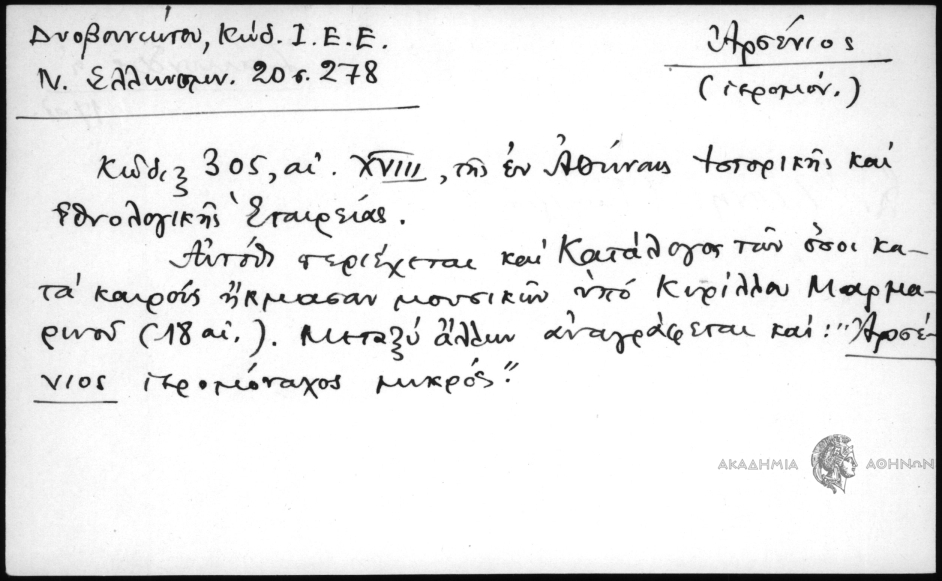 Δυοβουνιώτου, Κώδ. Ι. Ε. Ε.
Ν. Ελληνομν. 20 σ. 278
Ἀρσένιος
(ἱερομόν.)
Κῶδιξ 305, αἰ. XVIII, τῆς ἐν Ἀθήναις Ἱστορικῆς καὶ
Ἐθνολογικῆς Ἑταιρείας.
Αὐτόθι περιέχεται καὶ Κατάλογος τῶν ὅσοι κα-
τὰ καιροὺς ἤκμασαν μουσικῶν ὑπὸ Κυρίλλου Μαρμα-
ρινοῦ (18 αἰ.). Μεταξὺ ἄλλων ἀναγράφεται καί: "Ἀρσέ-
νιος ἱερομόναχος μικρός."
ΑΚΑΔΗΜΙΑ ΑΘΗΝΩΝ